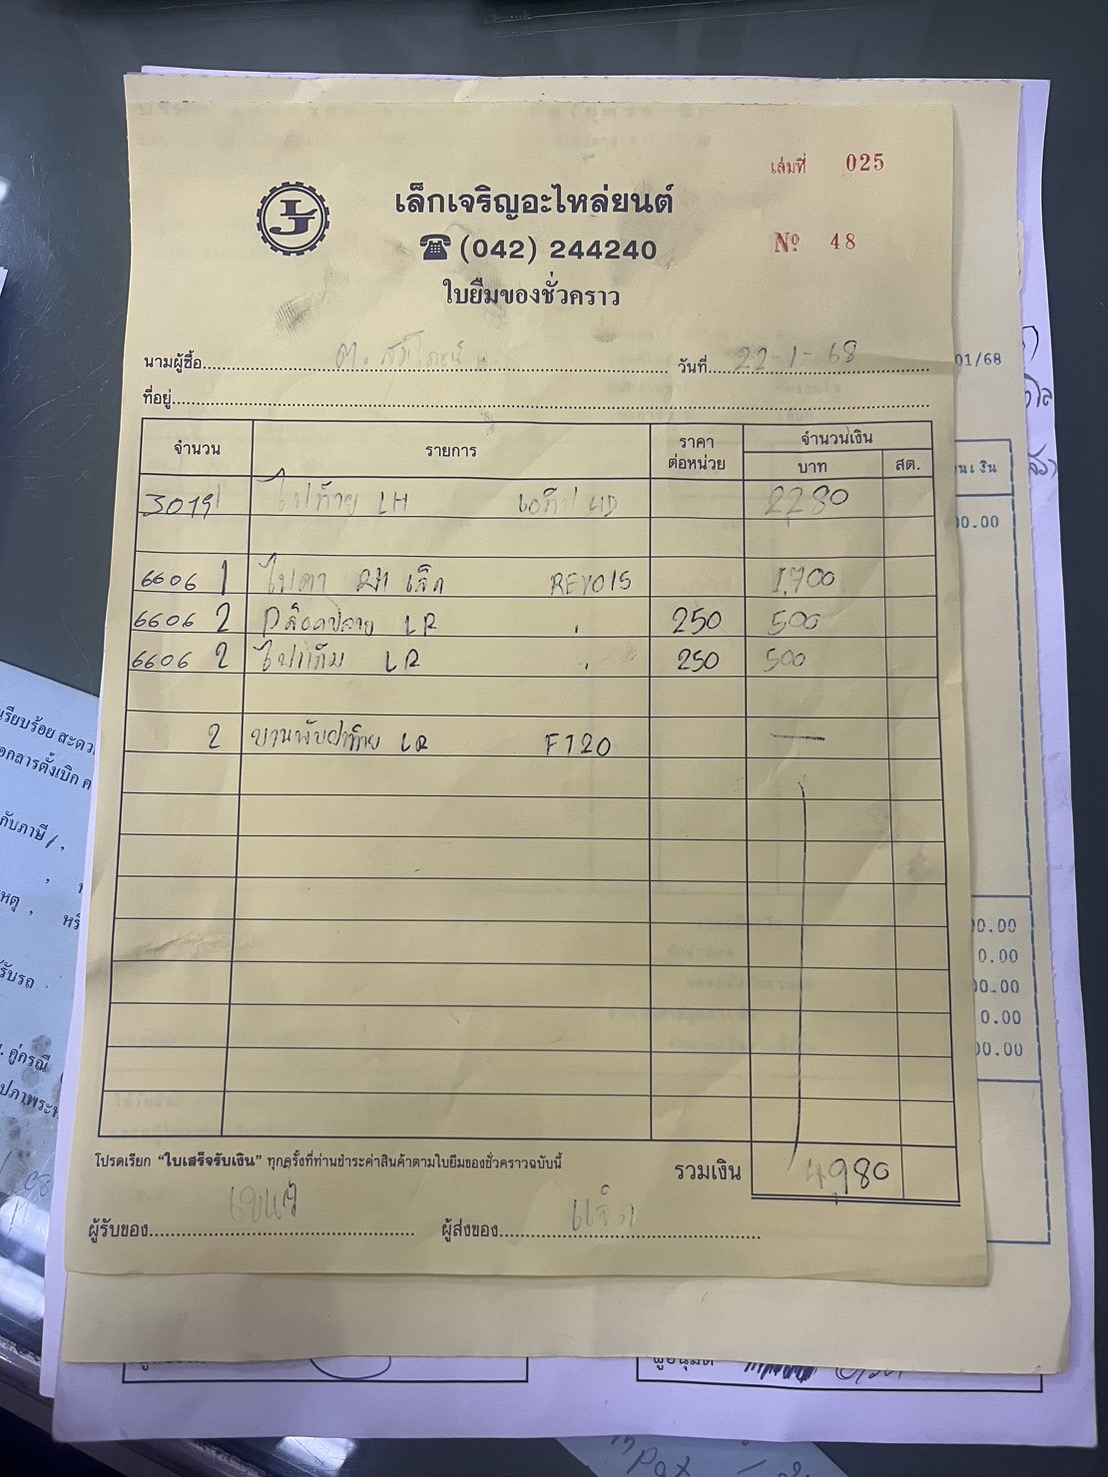 เล่มที่ 025
LJ
เล็กเจริญอะไหล่ยนต์
(042) 244240
Nº 48
ใบยืมของชั่วคราว
นามผู้ซื้อ วันที่ 22-1-68
01/68
ที่อยู่
จำนวน รายการ ราคาต่อหน่วย จำนวนเงิน
บาท สต.
นเงิน
3019 ไฟท้าย LH 2280
00.00
6606 1 ไฟตา เล็ก REVO15 1,700
6606 2 LR 250 500
6606 2 ไฟแก้ม LR 250 500
2 บานพับฝาท้าย LR F120 —
รียบร้อย
กสารตั้งเบิก
กับภาษี
หตุ
รับรถ
คู่กรณี
00.00
0.00
00.00
0.00
00.00
โปรดเรียก “ใบเสร็จรับเงิน” ทุกครั้งที่ท่านชำระค่าสินค้าตามใบยืมของชั่วคราวฉบับนี้
รวมเงิน 4,980
ผู้รับของ ผู้ส่งของ
ผู้อนุมัติ